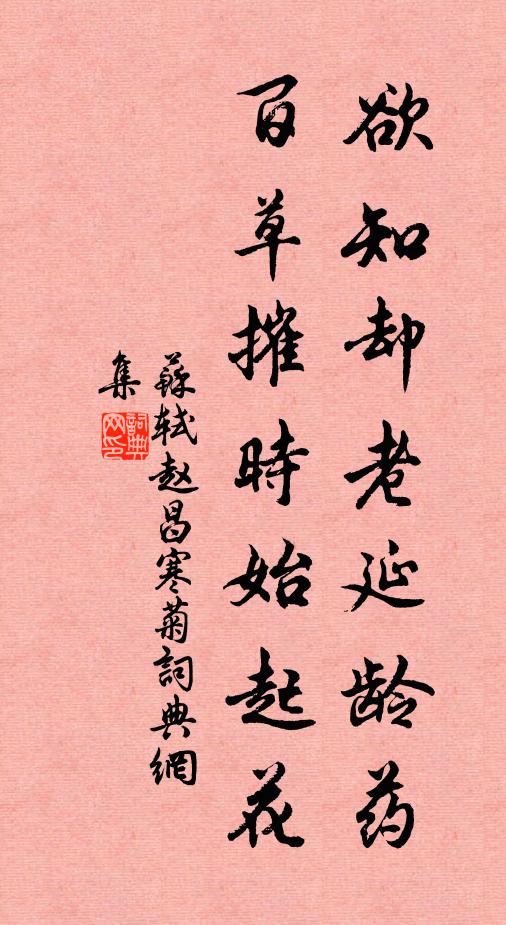 欲知却老延龄药
百草摧時始起花
蘇轼赵昌寒菊詞典網
集
詞典
网印